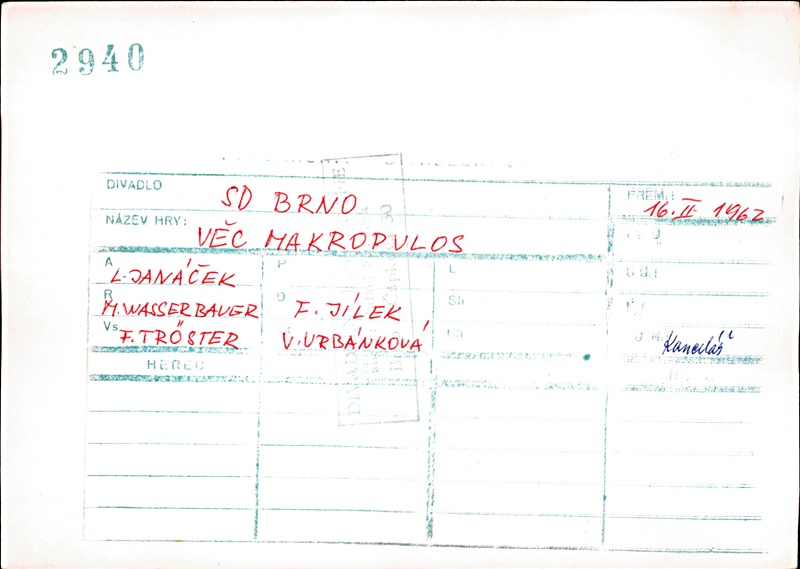 2940
DIVADLO SD BRNO PREM.: 16. II. 1962
NÁZEV HRY: VĚC MAKROPULOS
A L. JANÁČEK P L
R M. WASSERBAUER D F. JÍLEK
Vs F. TRÖSTER V. URBÁNKOVÁ
HEREC